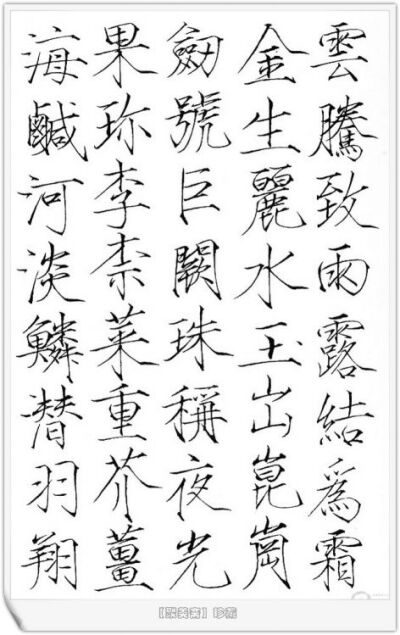 雲騰致雨露結爲霜
金生麗水玉出崑崗
劍號巨闕珠稱夜光
果珎李柰菜重芥薑
海鹹河淡鱗潛羽翔